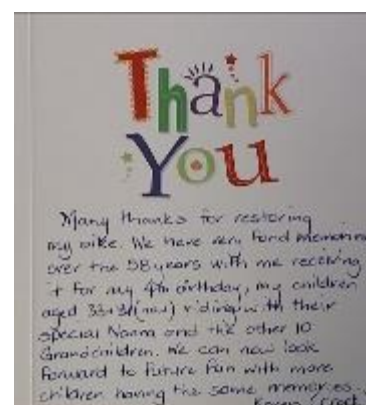 Thank
You
Many thanks for restoring
my bike. We have very fond memories
over the 58 years with me receiving
it for my 4th birthday, my children
aged 33+31(now) riding with their
special Nanna and the other 10
Grandchildren. We can now look
forward to future fun with more
children having the same memories.
Karen